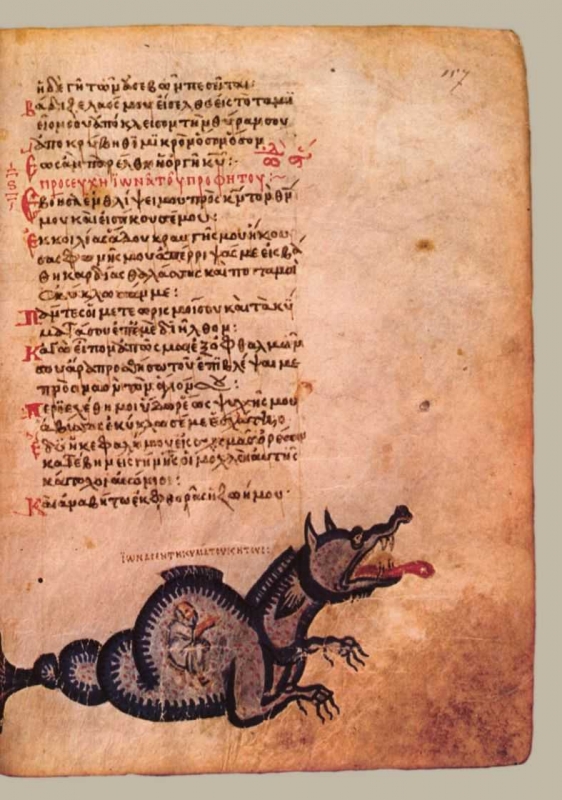 157
ἡ δὲ γῆ τῶν ἀσεβῶν πεσεῖται:
Βάδιζε λαός μου εἴσελθε εἰς τὸ ταμι
εῖόν σου ἀπόκλεισον τὴν θύραν σου
ἀποκρύβηθι μικρὸν ὅσον ὅσον
Ἕως ἂν παρέλθῃ ἡ ὀργὴ κυ:
προσευχὴ ἰωνᾶ τοῦ προφήτου:
Ἐβόησα ἐν θλίψει μου πρὸς κν τὸν θν
μου καὶ εἰσήκουσέ μου:
Ἐκ κοιλίας ᾅδου κραυγῆς μου ἤκου
σας φωνῆς μου ἀπέρριψάς με εἰς βά
θη καρδίας θαλάσσης καὶ ποταμοὶ
ἐκύκλωσάν με:
Πάντες οἱ μετεωρισμοί σου καὶ τὰ κύ
ματά σου ἐπ' ἐμὲ διῆλθον:
Κἀγὼ εἶπον ἀπῶσμαι ἐξ ὀφθαλμῶν
σου ἆρα προσθήσω τοῦ ἐπιβλέψαι με
πρὸς ναὸν τὸν ἅγιόν σου:
Περιεχύθη μοι ὕδωρ ἕως ψυχῆς μου
ἄβυσσος ἐκύκλωσέ με ἐσχάτη
Ἔδυ ἡ κεφαλή μου εἰς σχισμὰς ὀρέων
κατέβην εἰς γῆν ἧς οἱ μοχλοὶ αὐτῆς
κάτοχοι αἰώνιοι:
Καὶ ἀναβήτω ἐκ φθορᾶς ἡ ζωή μου
ΙΩΝΑC ΕΝ ΤΗ ΤΟΥ ΚΗΤΟΥC: